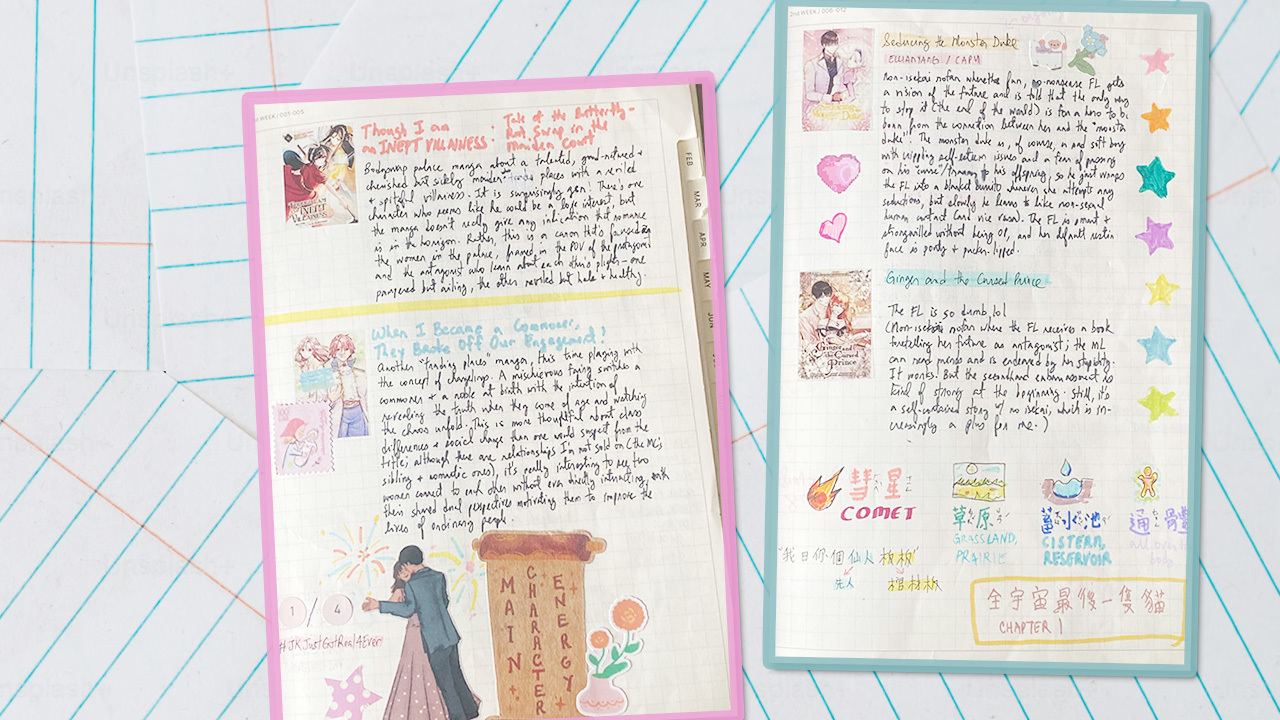 WEEK / 001-005
Though I am
an INEPT VILLAINESS :
Tale of the Butterfly-
Rat Swap in the
Maiden Court
Bodyswap palace manga about a talented, good-natured +
cherished but sickly maiden places with a reviled
+ spiteful villainess. It is surprisingly gen! There's one
character who seems like he would be a love interest, but
the manga doesn't really give any indication that romance
is in the horizon. Rather, this is a canon that's focused on
the women in the palace, framed in the POV of the protagonist
and the antagonist who learn about each other's plights - one
pampered but ailing, the other reviled but hale + healthy.
When I Became a Commoner,
They Broke Off Our Engagement!
Another "trading places" manga, this time playing with
the concept of changelings. A mischievous fairy switches a
commoner + a noble at birth with the intention of
revealing the truth when they come of age and watching
the chaos unfold. This is more thoughtful about class
differences + social change than one would suggest from the
title; although there are relationships I'm not sold on (the MC's
sibling + romantic ones), it's really interesting to see two
women connect to each other without even directly interacting, with
their shared dual perspectives motivating them to improve the
lives of ordinary people.
1 / 4
#JKJustGotReal4Ever
MAIN
CHARACTER
ENERGY
FEB
MAR
APR
MAY
JUN
2nd WEEK / 006-012
Seducing the Monster Duke
ELIANYANG / CAPY
Non-isekai notan where the fan, no-nonsense FL gets
a vision of the future and is told that the only way
to stop it (the end of the world) is for a hero to be
born from the connection between her and the "monster
duke". The monster duke is, of course, a soft boy
with crippling self-esteem issues and a fear of passing
on his "curse" to his offspring, so he just wraps
the FL into a blanket burrito whenever she attempts any
seductions, but slowly he learns to like non-sexual
human contact and vice versa. The FL is smart +
strongwilled without being OP, and her default resting
face is pouty + pucker-lipped.
Ginger and the Cursed Prince
The FL is so dumb, lol
(Non-isekai notan where the FL receives a book
foretelling her future as antagonist; the ML
can read minds and is endeared by her stupidity.
It works! But the secondhand embarrassment is
kind of strong at the beginning. Still, it's
a self-contained story w/ no isekai, which is in-
creasingly a plus for me.)
彗星
COMET
草原
GRASSLAND,
PRAIRIE
蓄水池
CISTERN,
RESERVOIR
通體
body
"我日你個仙人板板"
先人
棺材板
全宇宙最後一隻貓
CHAPTER 1